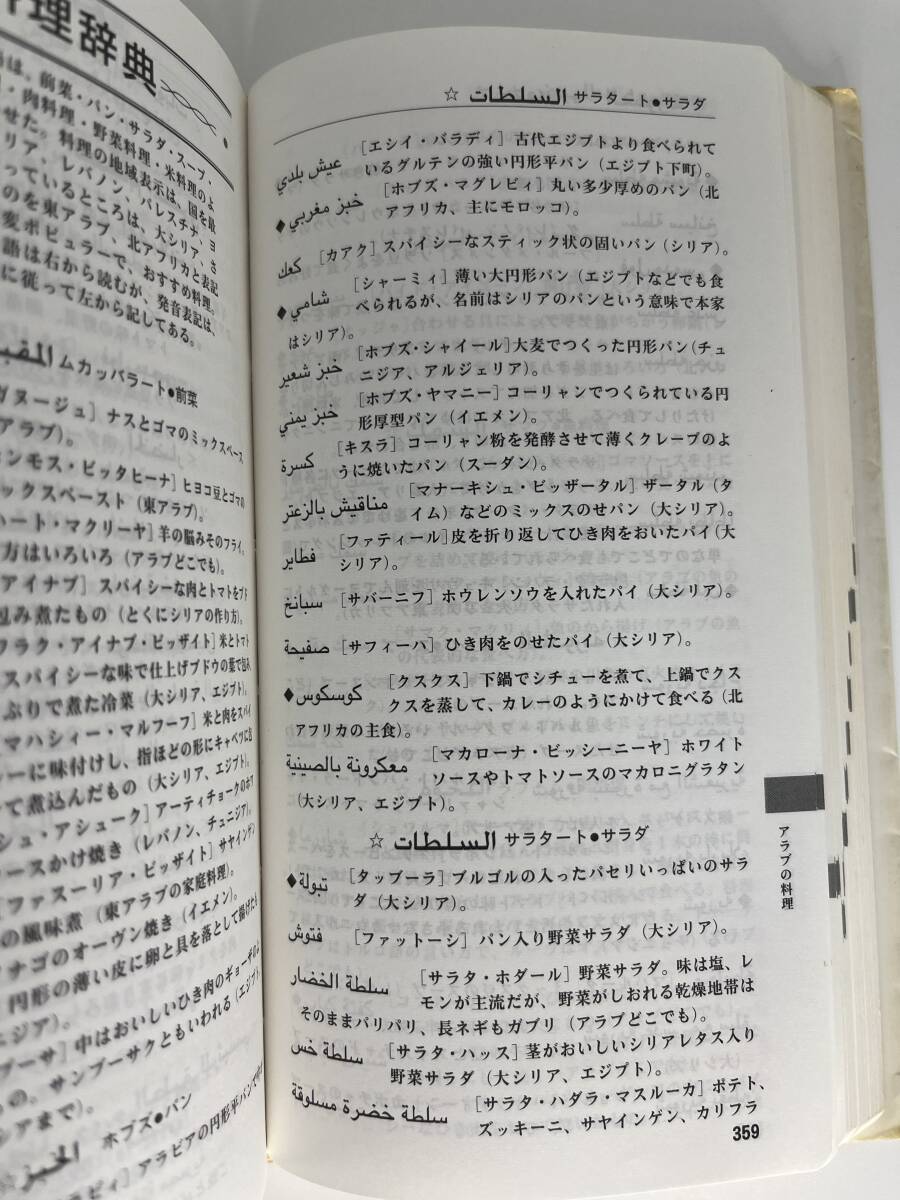 理辞典
は。前菜・パン・サラダ・スープ・
・肉料理・野菜料理・米料理のよ
せた。料理の地域表示は、国を最
リア、レバノン、パレスチナ、ヨ
っているところは、大シリア、さ
のを東アラブ、北アフリカと表記
変ポピュラーで、おすすめ料理。
語は右から読むが、発音表記は、
に従って左から記してある。
ムカッバラート●前菜
ヌージュ］ナスとゴマのミックスペース
アラブ）。
ンモス・ビッタヒーナ］ヒヨコ豆とゴマの
ックスペースト（東アラブ）。
ハート・マクリーヤ］羊の脳みそのフライ。
方はいろいろ（アラブどこでも）。
アイナブ］スパイシーな肉とトマトをブド
包み煮たもの（とくにシリアの作り方）。
フラク・アイナブ・ビッザイト］米とトマト
スパイシーな味で仕上げブドウの葉で包み
ぷりで煮た冷菜（大シリア、エジプト）。
マハシィー・マルフーフ］米と肉をスパイ
シーに味付けし、指ほどの形にキャベツに包
て煮込んだもの（大シリア、エジプト）。
シュ・アシューク］アーティチョークのホワ
ースかけ焼き（レバノン、チュニジア）。
［ファスーリア・ビッザイト］サヤインゲン
の風味煮（東アラブの家庭料理）。
ナゴのオーヴン焼き（イエメン）。
円形の薄い皮に卵と具を落として揚げたも
ニジア）。
ブーサ］中はおいしいひき肉のギョーザのよ
もの。サンブーサクともいわれる（エジプト
シアまで）。
☆ الخبز ホブズ●パン
ビィ］アラビアの円形平パンで中
☆ السلطات サラタート●サラダ
عيش بلدي ［エシイ・バラディ］古代エジプトより食べられて
いるグルテンの強い円形平パン（エジプト下町）。
◆ خبز مغربي ［ホブズ・マグレビィ］丸い多少厚めのパン（北
アフリカ、主にモロッコ）。
كعك ［カアク］スパイシーなスティック状の固いパン（シリア）。
◆ شامي ［シャーミィ］薄い大円形パン（エジプトなどでも食
べられるが、名前はシリアのパンという意味で本家
はシリア）。
خبز شعير ［ホブズ・シャイール］大麦でつくった円形パン（チュ
ニジア、アルジェリア）。
خبز يمني ［ホブズ・ヤマニー］コーリャンでつくられている円
形厚型パン（イエメン）。
كسرة ［キスラ］コーリャン粉を発酵させて薄くクレープのよ
うに焼いたパン（スーダン）。
مناقيش بالزعتر ［マナーキシュ・ビッザータル］ザータル（タ
イム）などのミックスのせパン（大シリア）。
فطاير ［ファティール］皮を折り返してひき肉をおいたパイ（大
シリア）。
سبانخ ［サバーニフ］ホウレンソウを入れたパイ（大シリア）。
صفيحة ［サフィーハ］ひき肉をのせたパイ（大シリア）。
◆ كوسكوس ［クスクス］下鍋でシチューを煮て、上鍋でクス
クスを蒸して、カレーのようにかけて食べる（北
アフリカの主食）。
معكرونة بالصينية ［マカローナ・ビッシーニーヤ］ホワイト
ソースやトマトソースのマカロニグラタン
（大シリア、エジプト）。
☆ السلطات サラタート●サラダ
◆ تبولة ［タッブーラ］ブルゴルの入ったパセリいっぱいのサラ
ダ（大シリア）。
فتوش ［ファットーシ］パン入り野菜サラダ（大シリア）。
سلطة الخضار ［サラタ・ホダール］野菜サラダ。味は塩、レ
モンが主流だが、野菜がしおれる乾燥地帯は
そのままパリパリ、長ネギもガブリ（アラブどこでも）。
سلطة خس ［サラタ・ハッス］茎がおいしいシリアレタス入り
野菜サラダ（大シリア、エジプト）。
سلطة خضرة مسلوقة ［サラタ・ハダラ・マスルーカ］ポテト、
ズッキーニ、サヤインゲン、カリフラ
アラブの料理
359